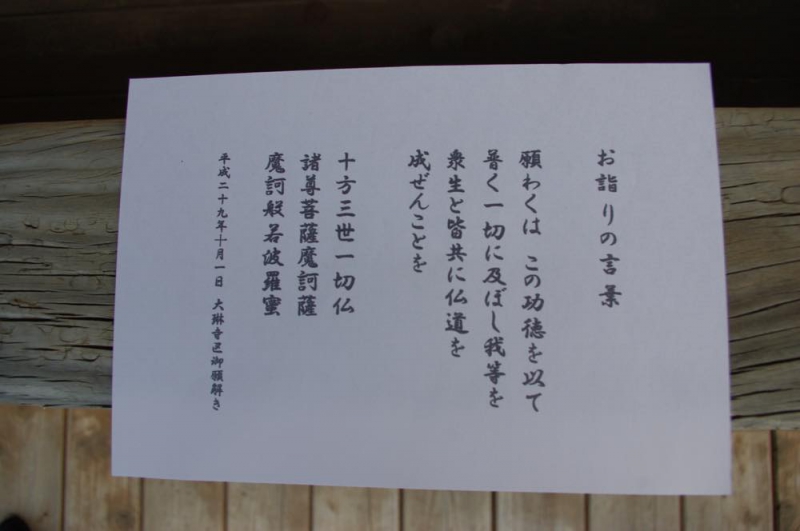 お詣りの言葉
願わくは この功徳を以て
普く一切に及ぼし我等を
衆生と皆共に仏道を
成ぜんことを
十方三世一切仏
諸尊菩薩魔訶薩
魔訶般若波羅蜜
平成二十九年十月一日 大琳寺巴御願解き